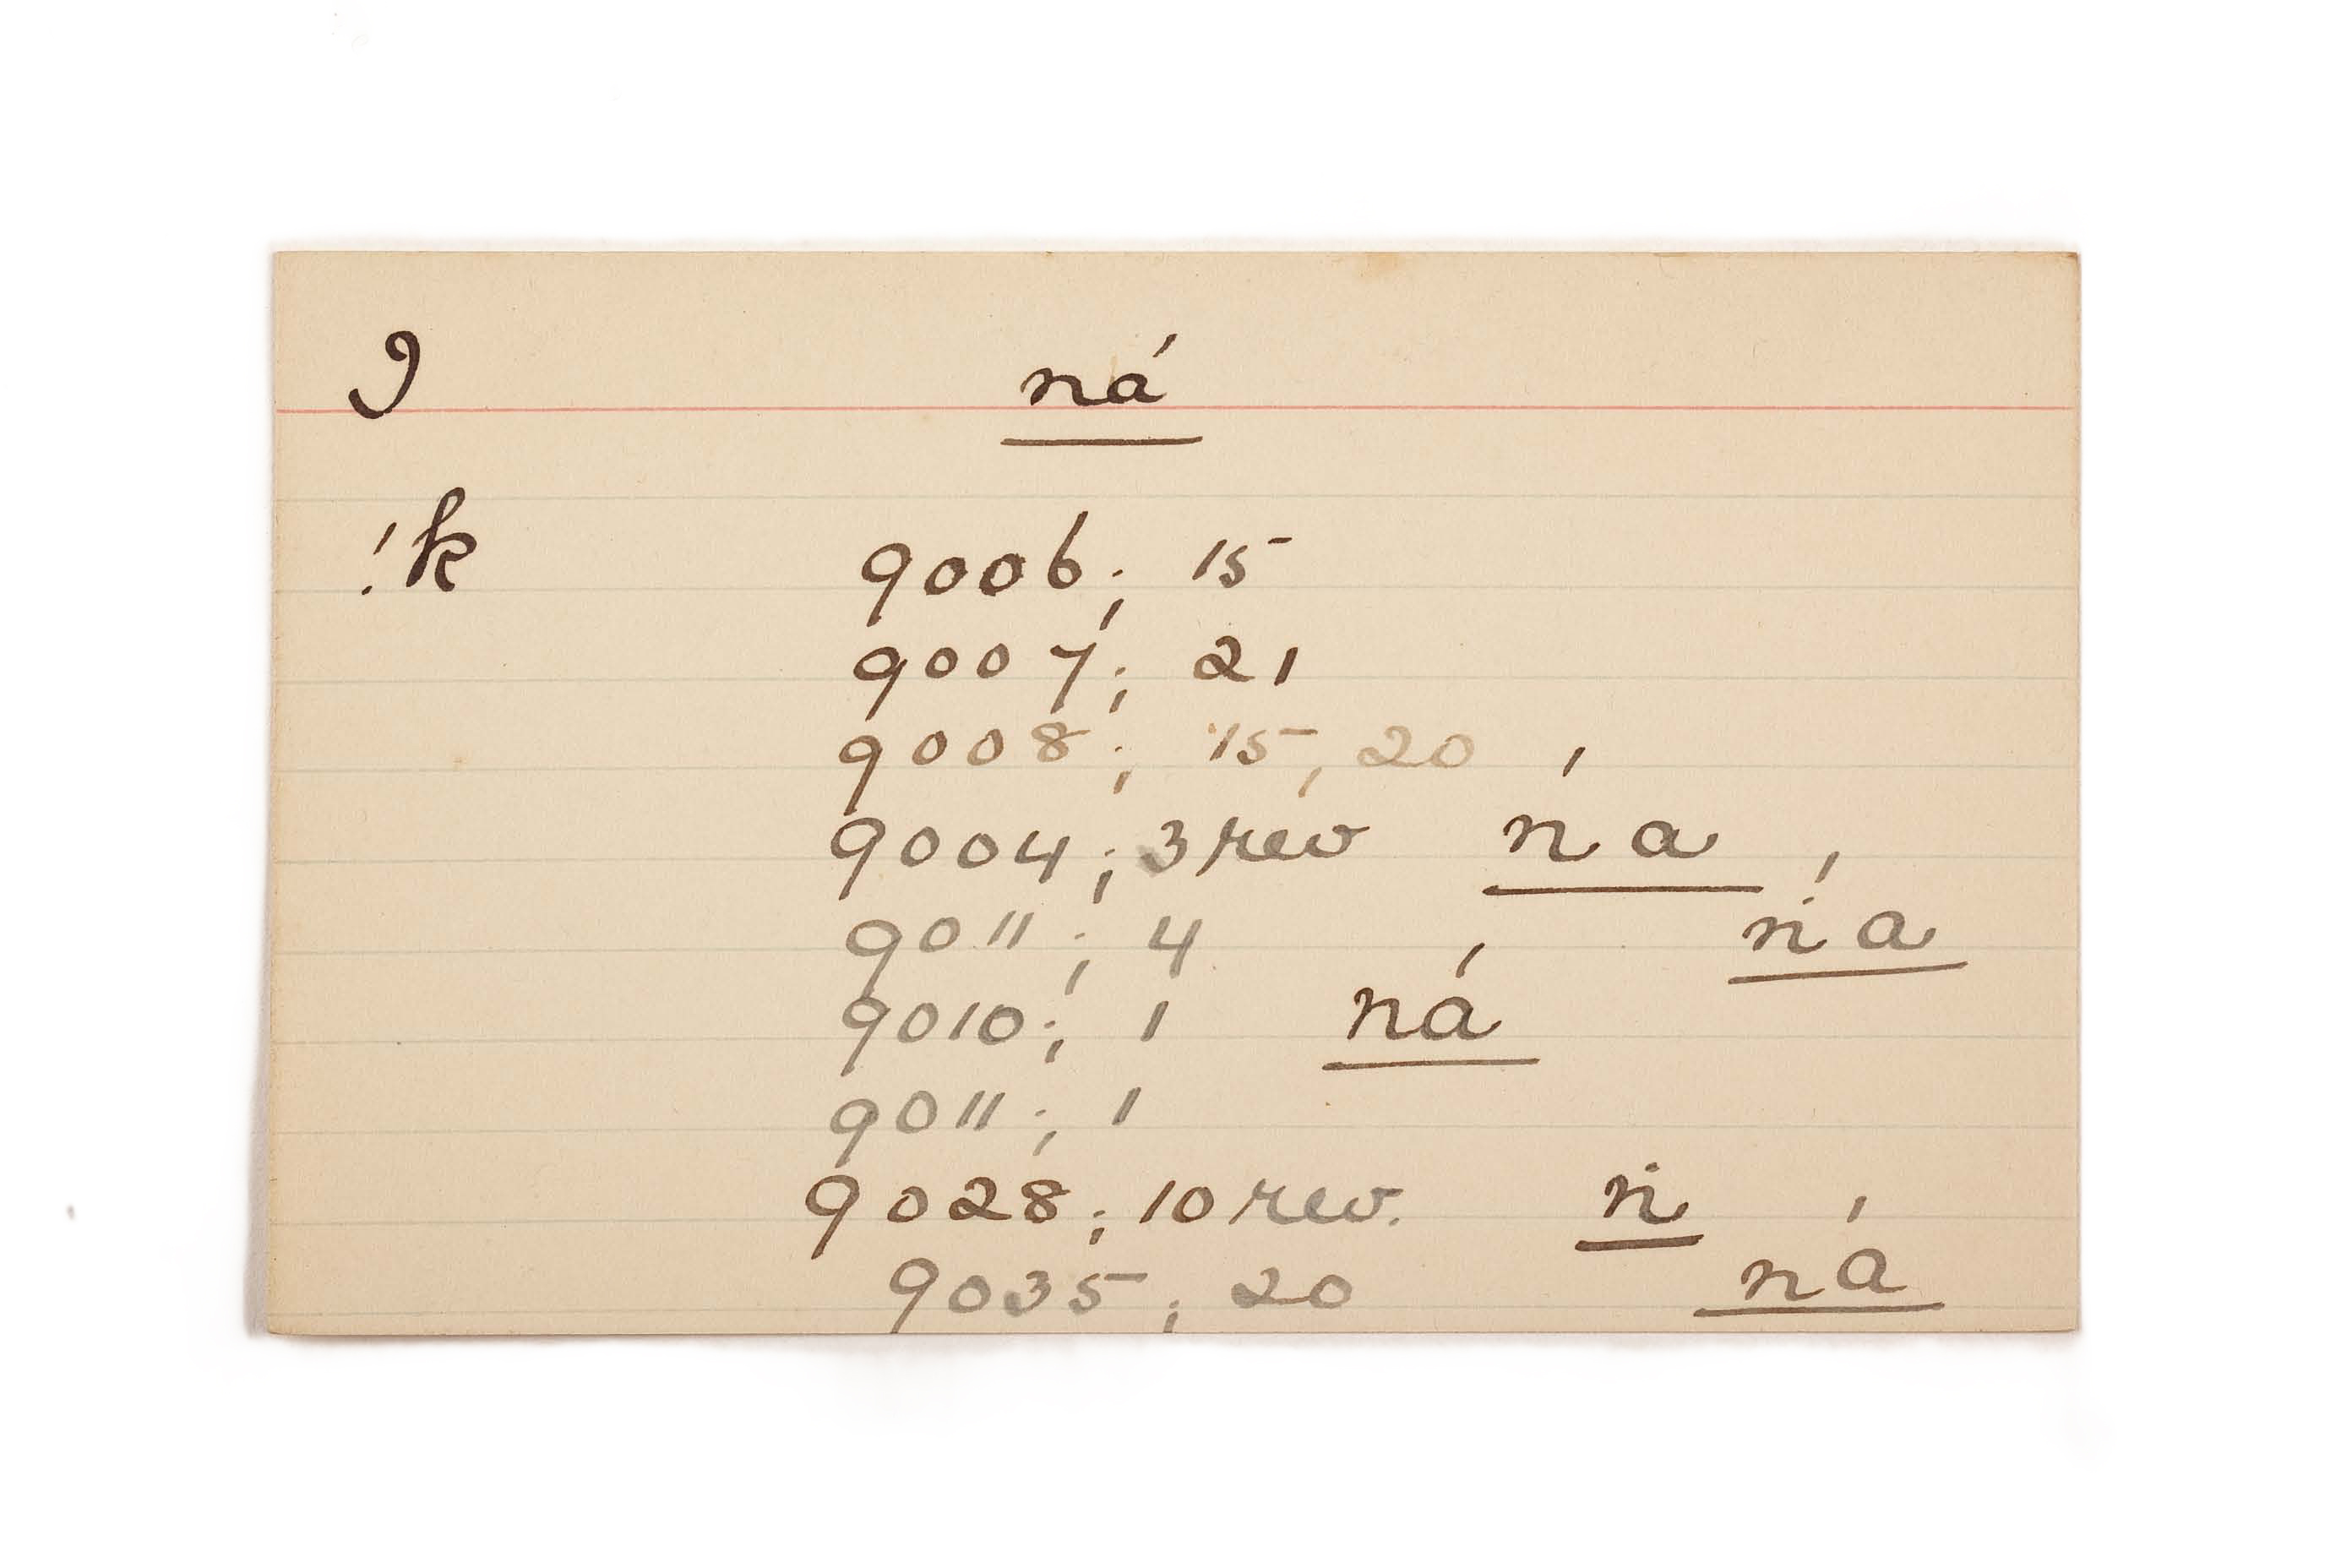 9 ná
!k 9006; 15
9007; 21
9008; 15, 20
9004; 3 rev ṅ a
9011; 4 ṅ a
9010; 1 ná
9011; 1
9028; 10 rev. ṅ
9035; 20 ná